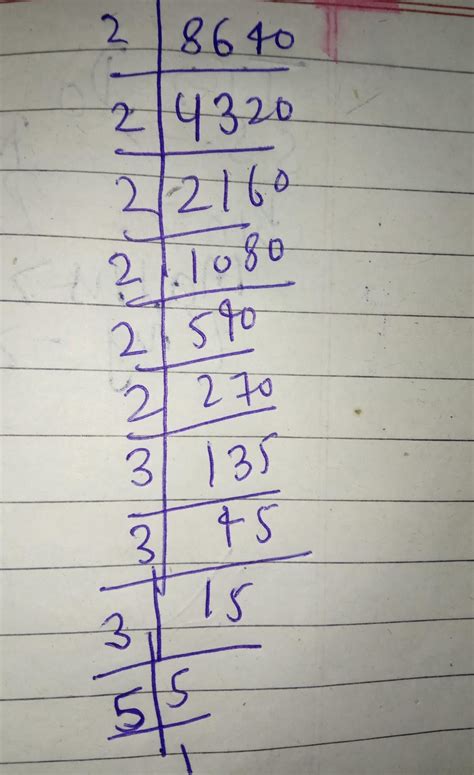 2 8640
2 4320
2 2160
2 1080
2 540
2 270
3 135
3 45
3 15
5 5
1